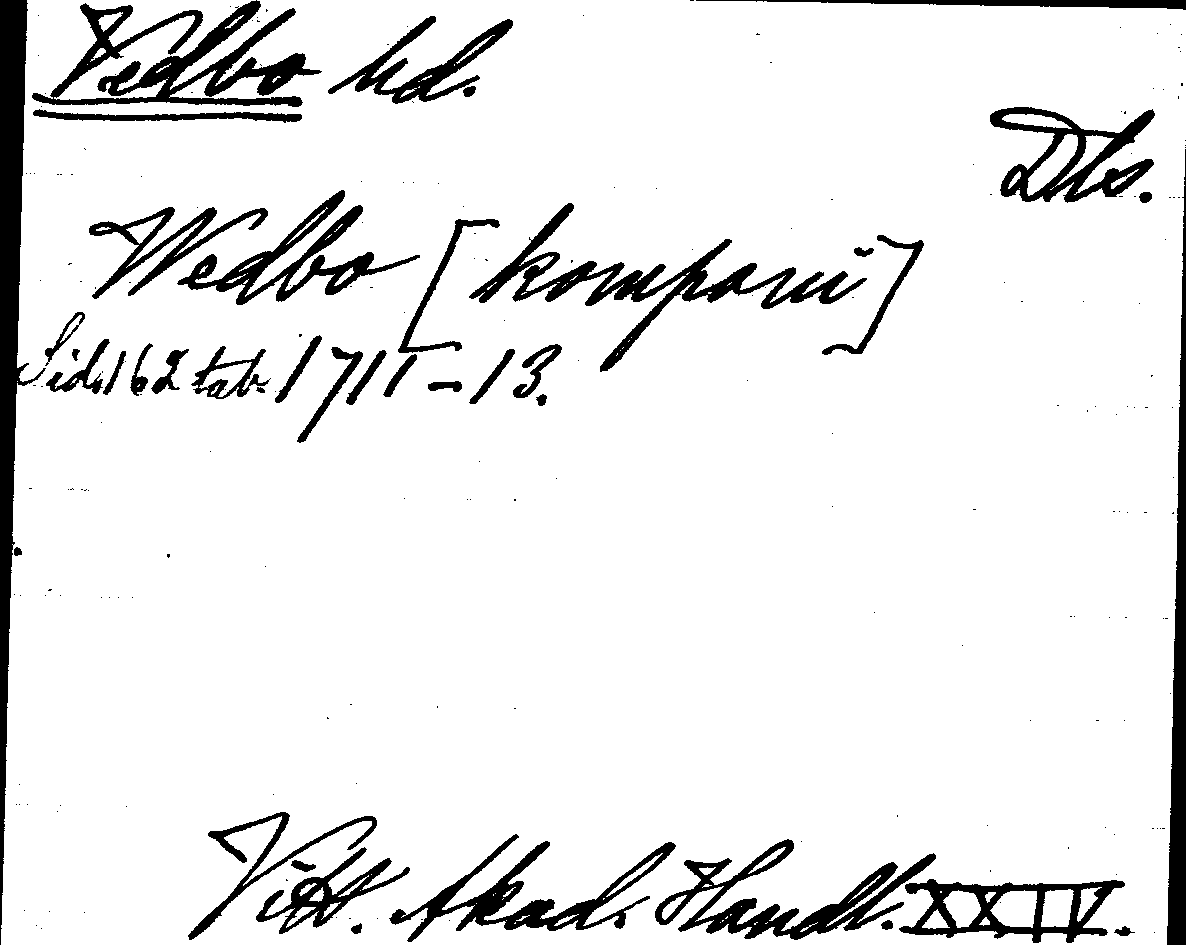 Vedbo hd.
Dls.
Wedbo [kompani]
Sid. 162 tab. 1711-13.
Vitt. Akad. Handl. XXIV.